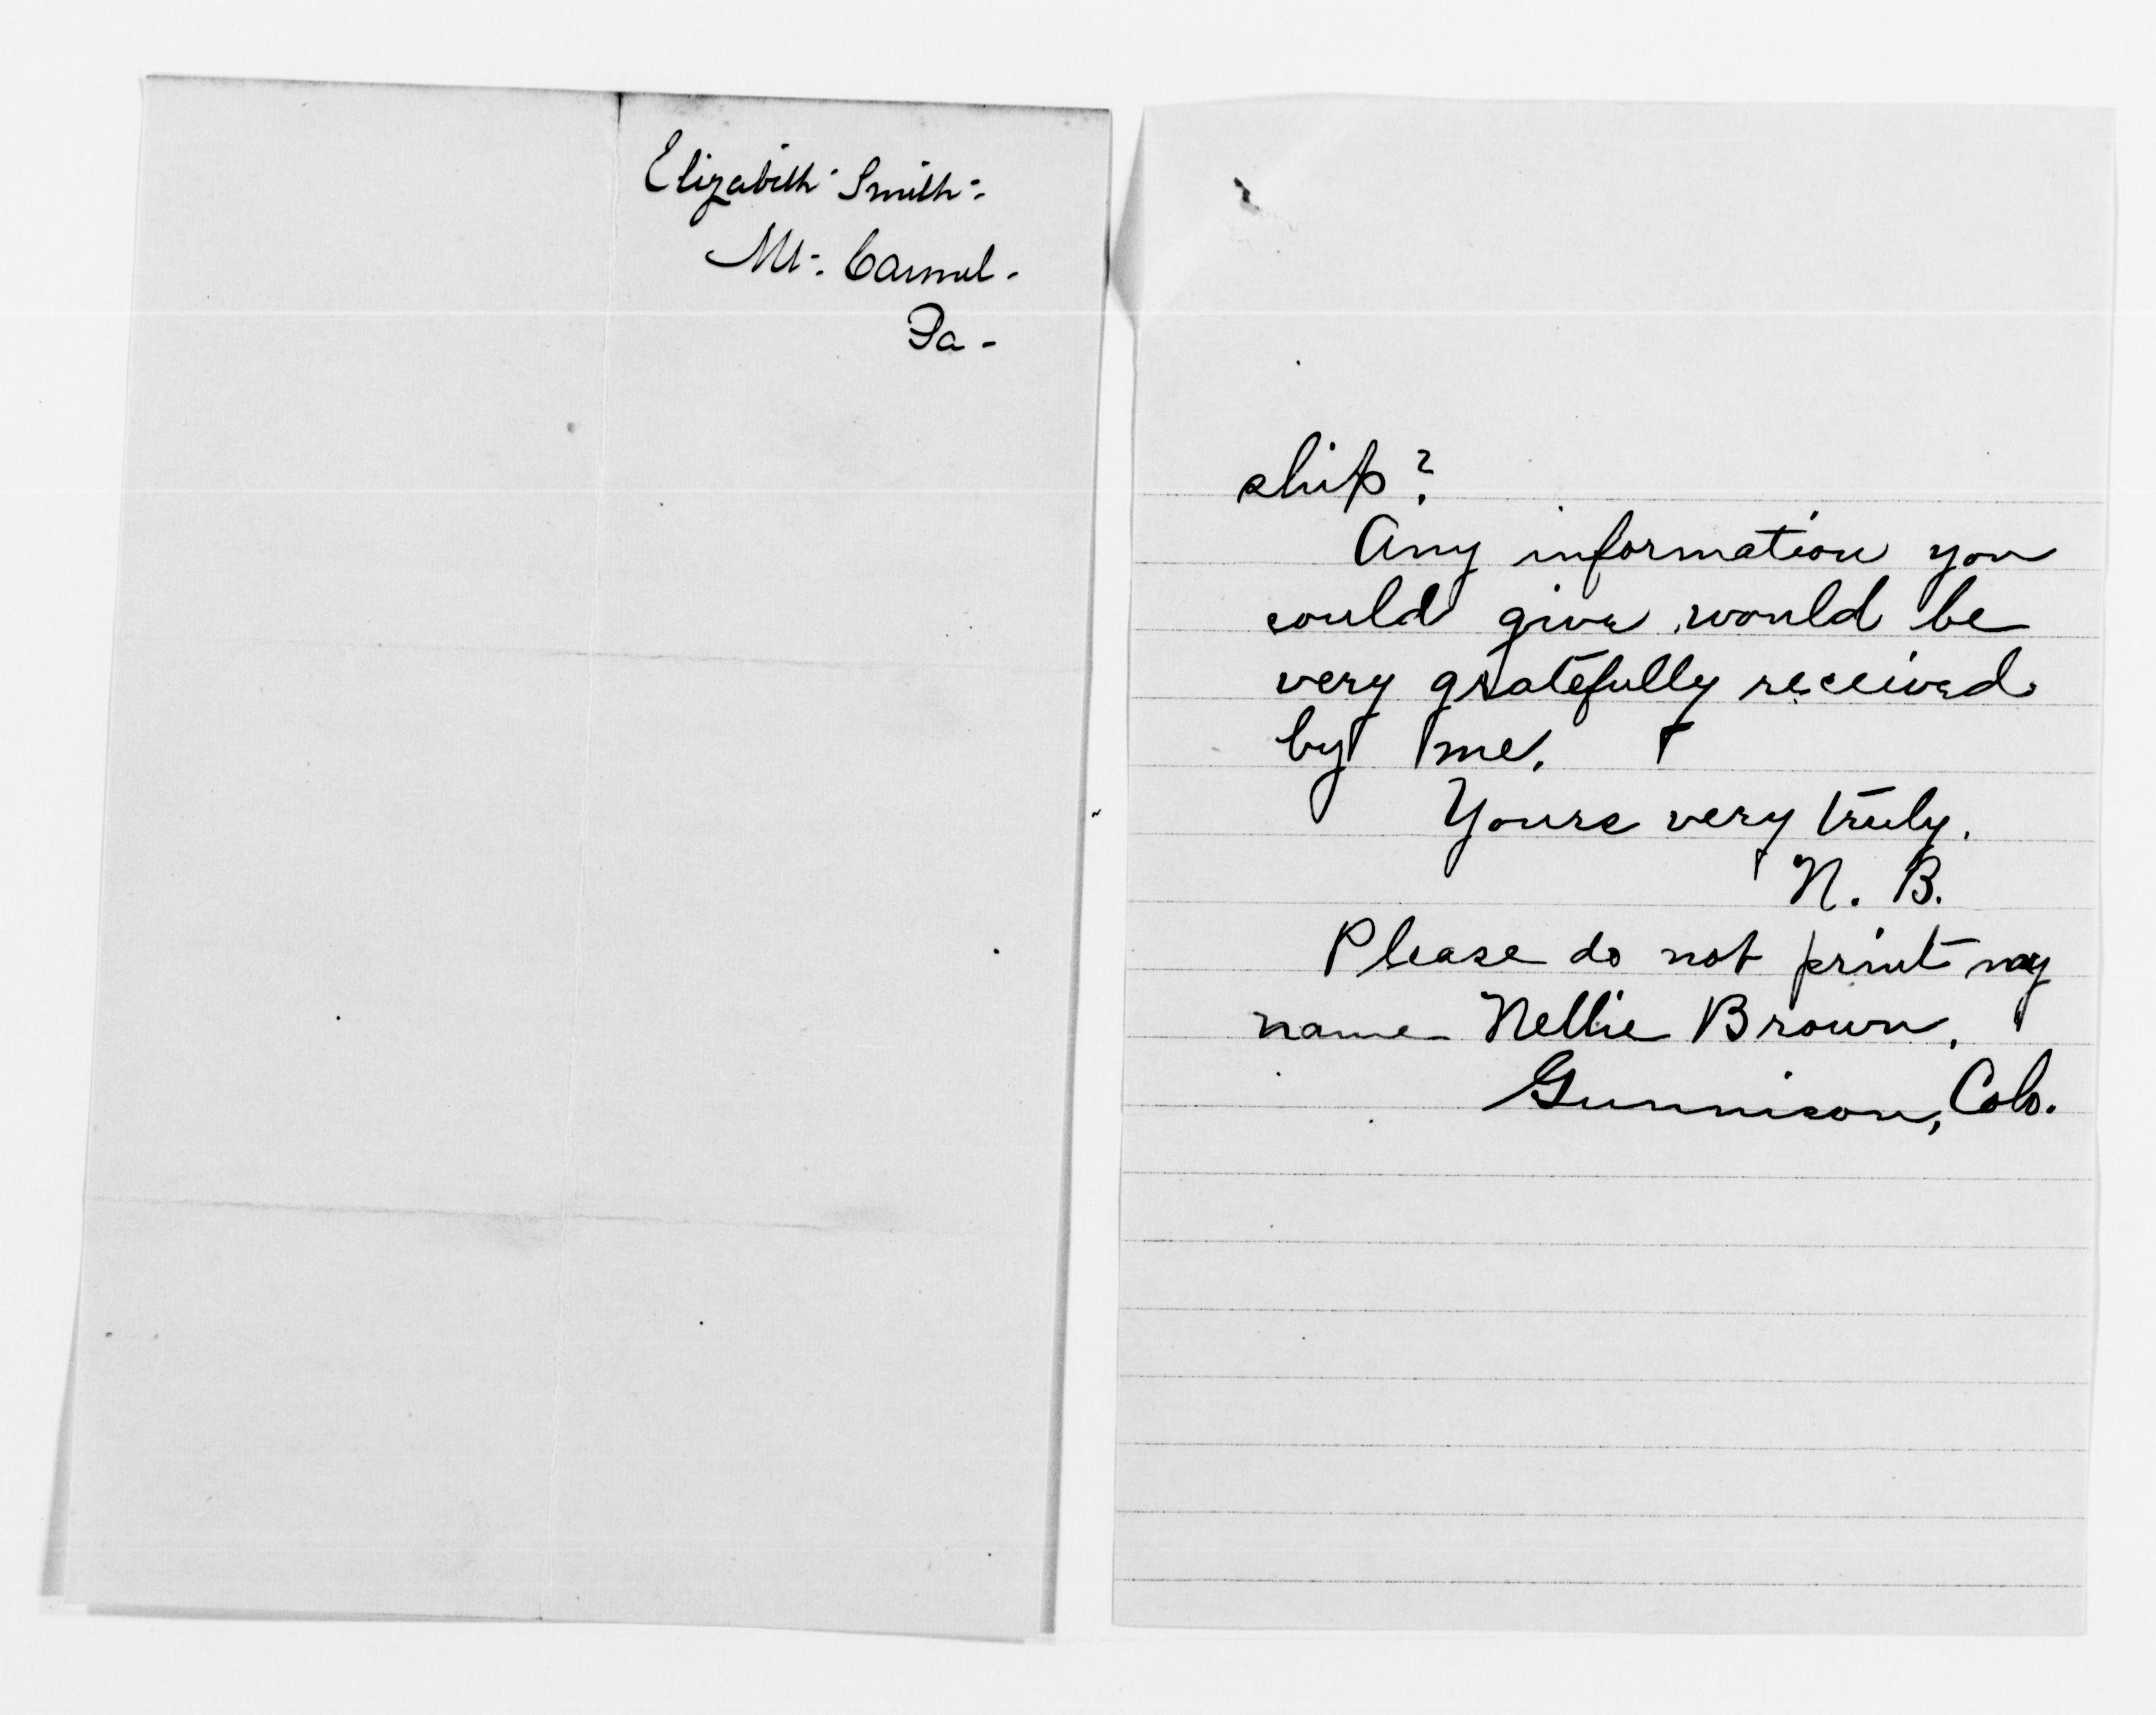 Elizabeth Smith-
Mt. Carmel-
Pa-
ship?
Any information you
could give would be
very gratefully received
by me.
Yours very truly.
N. B.
Please do not print my
name Nellie Brown,
Gunnison, Colo.